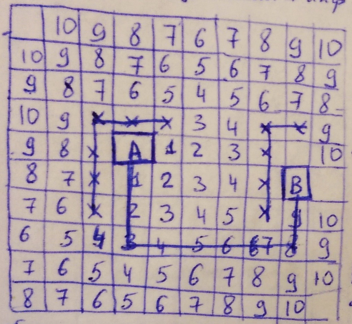 10 9 8 7 6 7 8 9 10
10 9 8 7 6 5 6 7 8 9
9 8 7 6 5 4 5 6 7 8
10 9 x x x 3 4 x x 9
9 8 x A 1 2 3 x 10
8 7 x 1 2 3 4 x B
7 6 x 2 3 4 5 x 9 10
6 5 4 3 4 5 6 7 8 9
7 6 5 4 5 6 7 8 9 10
8 7 6 5 6 7 8 9 10